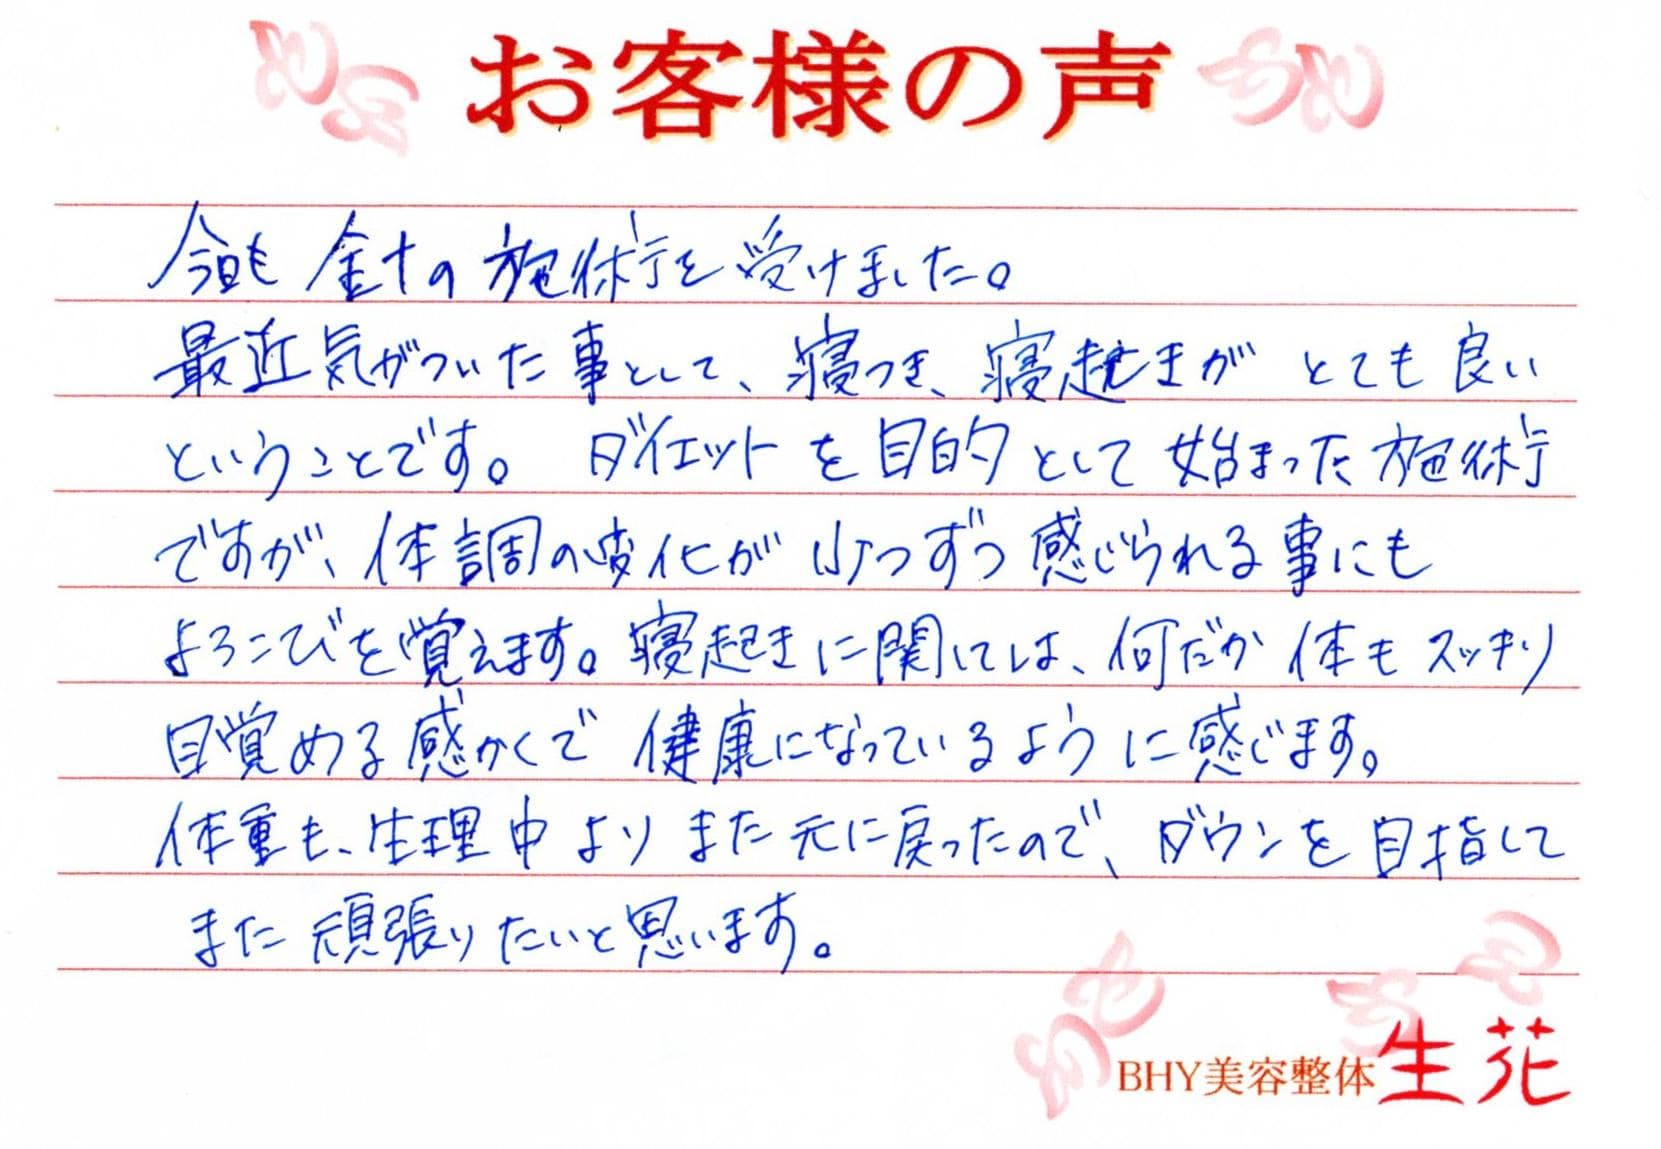 お客様の声
今日も 針の 施術を 受けました。
最近気がついた事として、寝つき、寝起きが とても良い
ということです。 ダイエットを目的として始まった施術
ですが、体調の変化が少しずつ感じられる事にも
よろこびを覚えます。寝起きに関しては、何だか体もスッキリ
目覚める感かくで 健康になっているように感じます。
体重も、生理中よりまた元に戻ったので、ダウンを目指して
また頑張りたいと思います。
BHY美容整体 生花